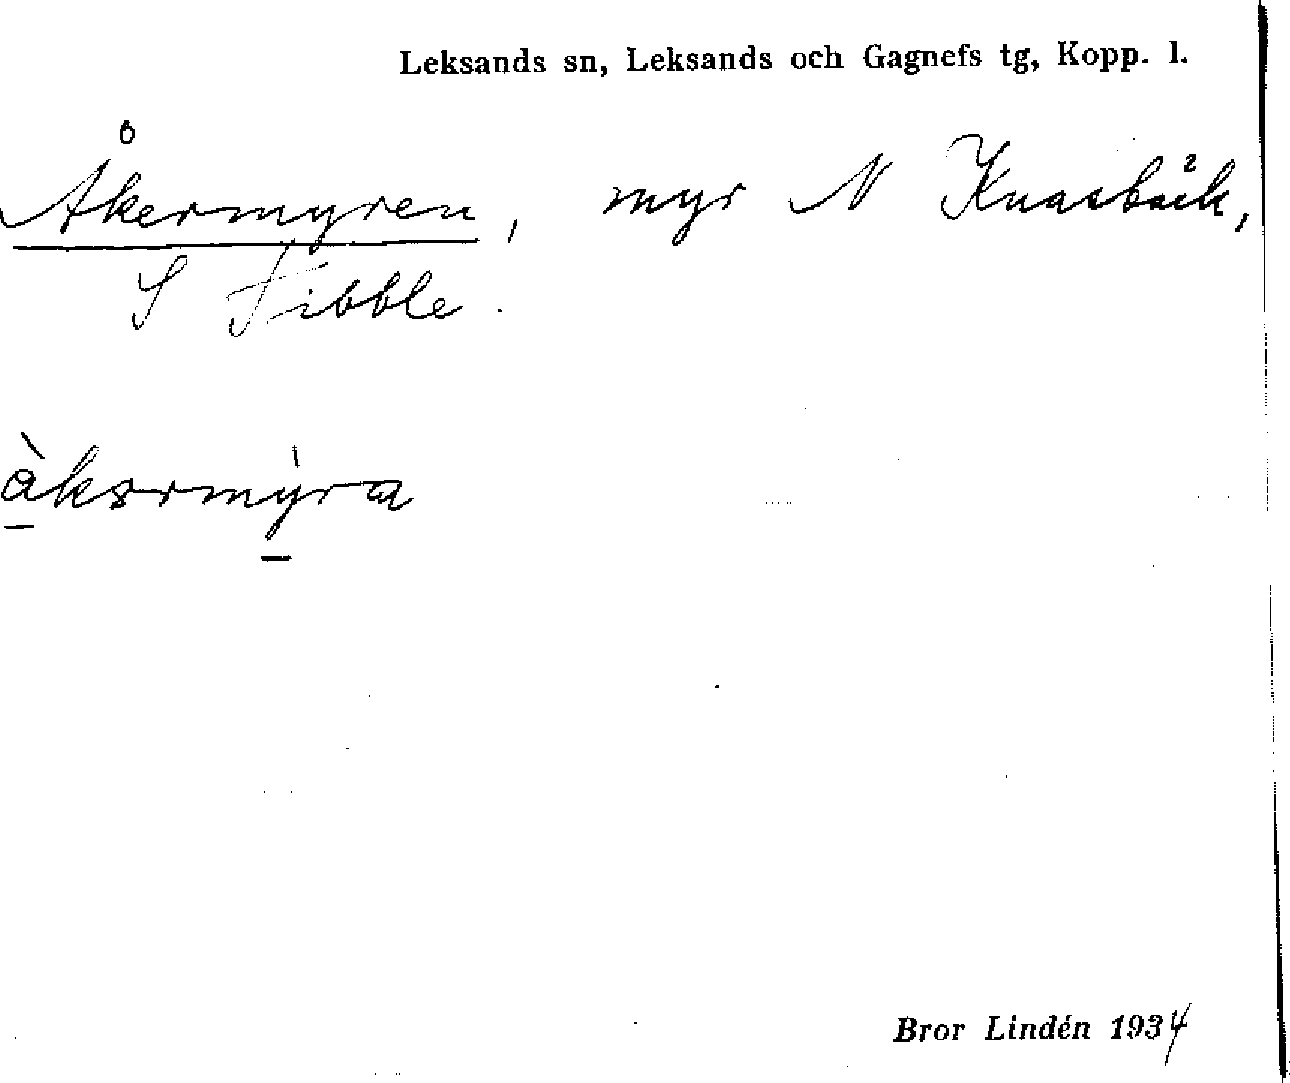 Leksands sn, Leksands och Gagnefs tg, Kopp. l.
Åkermyren, myr N Knasbäck,
S Fibble.
àkərmỳra
Bror Lindén 1934